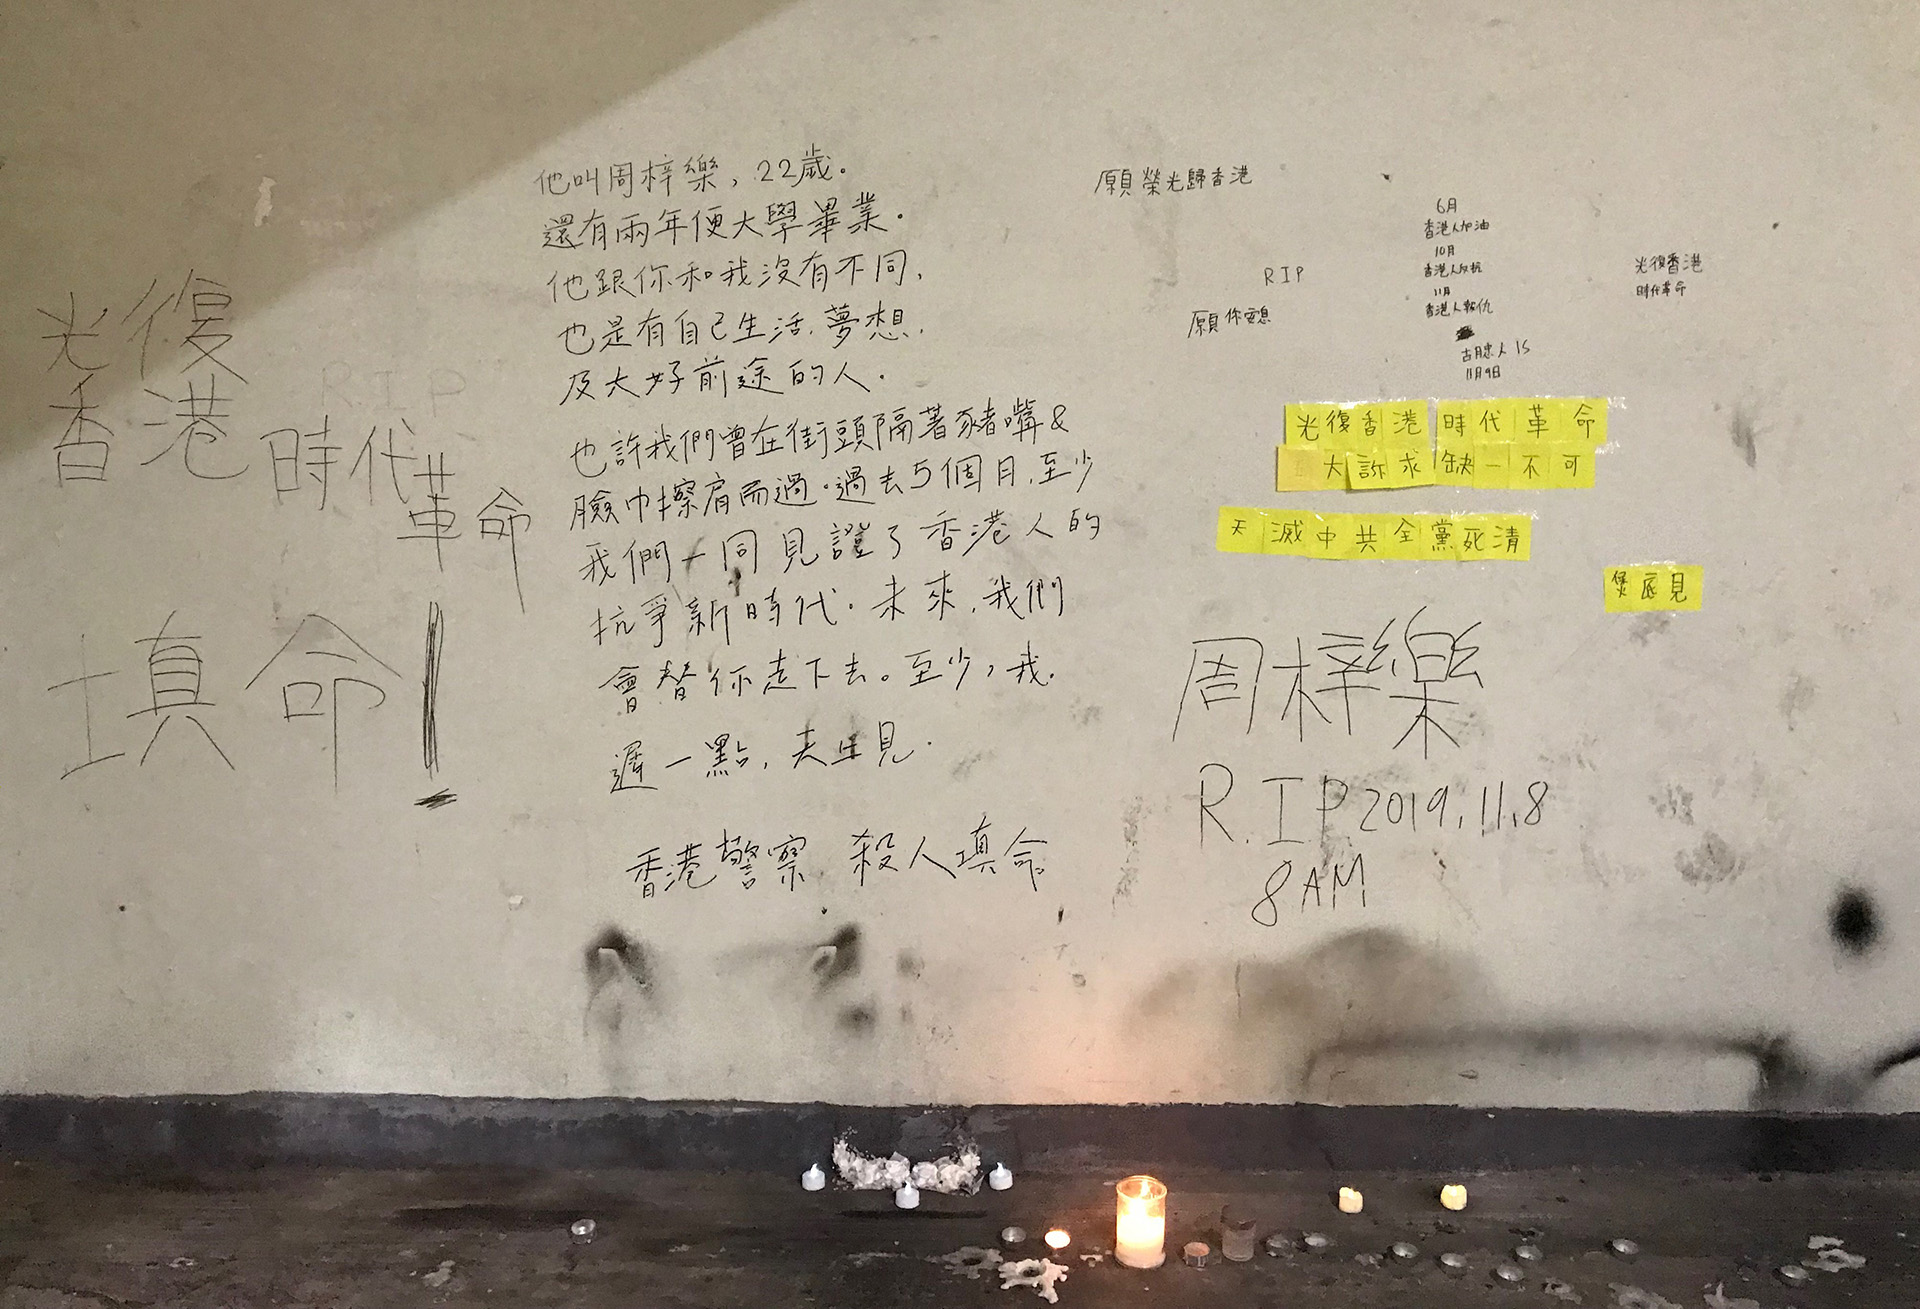 光復
香港
R.I.P
時代
革命
填命!
他叫周梓樂，22歲.
還有兩年便大學畢業.
他跟你和我沒有不同,
也是有自己生活,夢想,
及大好前途的人.
也許我們曾在街頭隔著豬嘴&
臉巾擦肩而過.過去5個月,至少
我們一同見證了香港人的
抗爭新時代.未來,我們
會替你走下去。至少,我.
遲一點,天上見.
香港警察 殺人填命
願榮光歸香港
RIP
願你安息
6月
香港人加油
10月
香港人反抗
11月
香港人報仇
11月9日
光復香港
時代革命
光復香港時代革命
大訴求缺一不可
天滅中共全黨死清
煲底見
周梓樂
R.I.P 2019.11.8
8AM